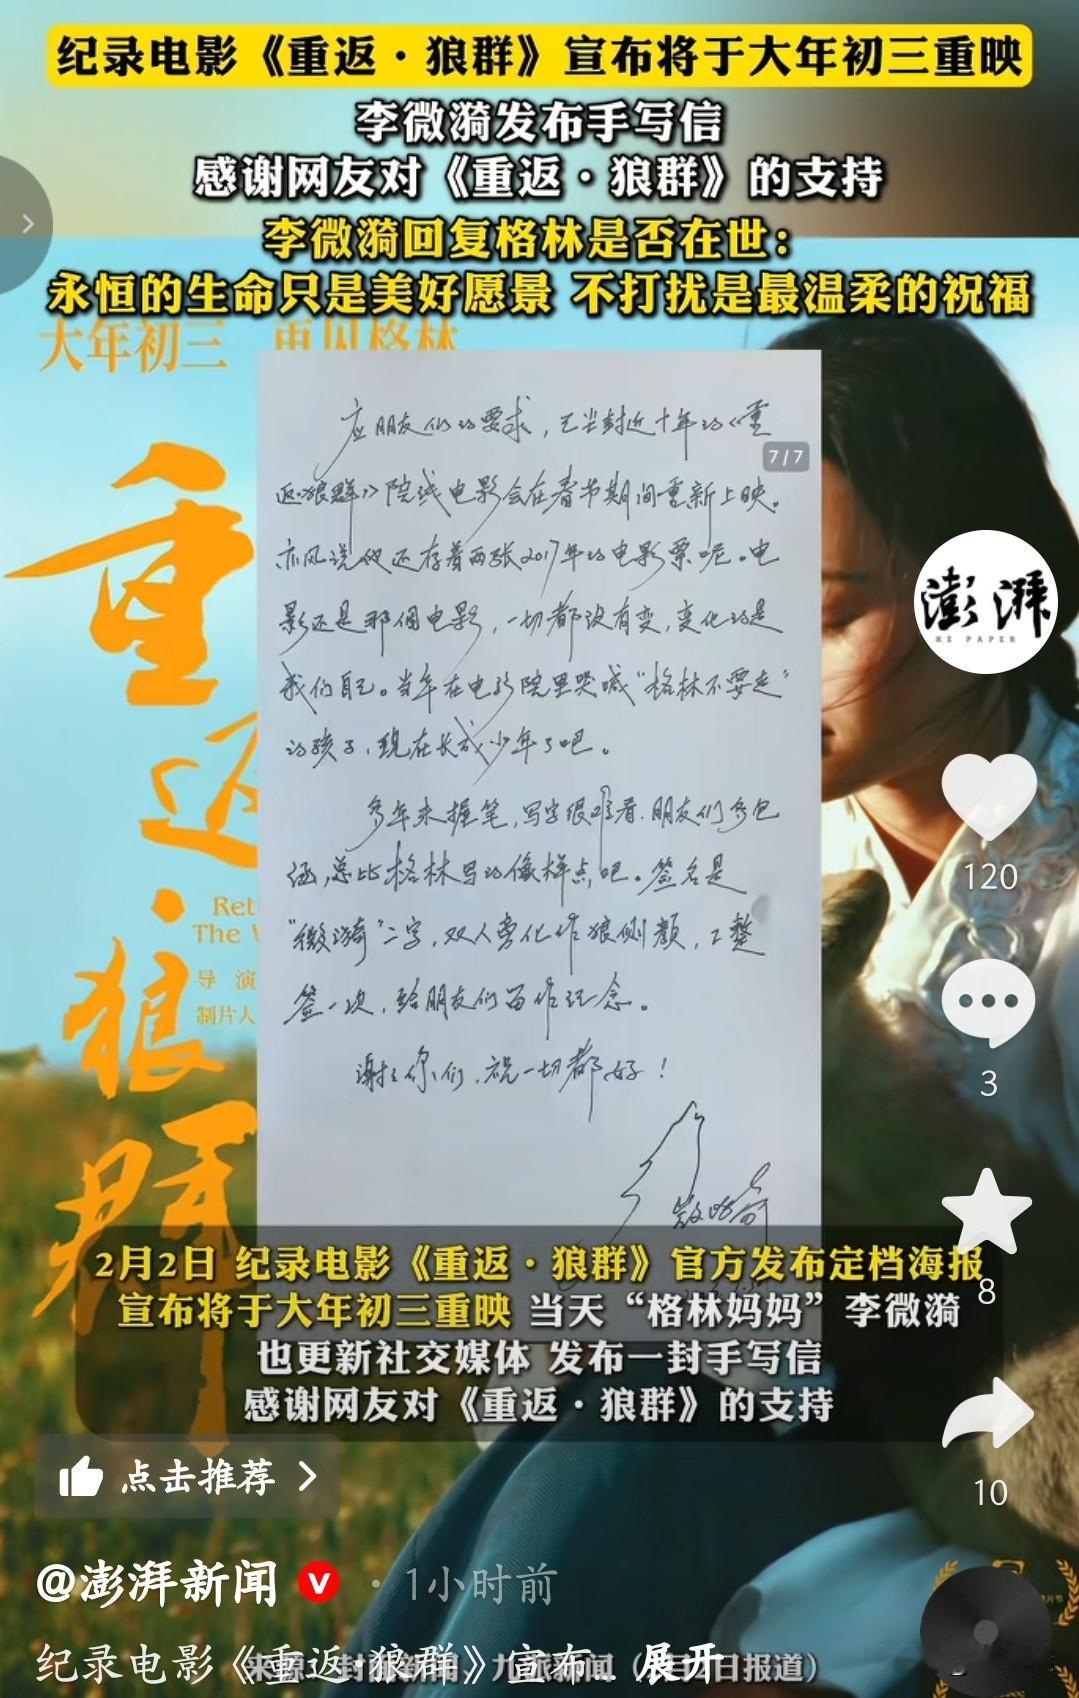 纪录电影《重返·狼群》宣布将于大年初三重映
李微漪发布手写信
感谢网友对《重返·狼群》的支持
李微漪回复格林是否在世：
永恒的生命只是美好愿景 不打扰是最温柔的祝福
大年初三 再见格林
重返·狼群
Ret
The W
导 演
制片人
应朋友们的要求，已尘封近十年的《重
7/7
返·狼群》院线电影会在春节期间重新上映。
亦风说他还存着两张2017年的电影票呢。电
影还是那个电影，一切都没有变，变化的是
我们自己。当年在电影院里哭喊“格林不要走”
的孩子，现在长成少年了吧。
多年未握笔，写字很难看，朋友们多包
涵，总比格林写的像样点吧。签名是
“微漪”二字，双人旁化作狼侧颜，工整
签一次，给朋友们留作纪念。
谢谢你们，祝一切都好！
澎湃
THE PAPER
120
3
8
10
2月2日 纪录电影《重返·狼群》官方发布定档海报
宣布将于大年初三重映 当天“格林妈妈”李微漪
也更新社交媒体 发布一封手写信
感谢网友对《重返·狼群》的支持
点击推荐 >
@澎湃新闻
· 1小时前
纪录电影《重返·狼群》宣布... 展开